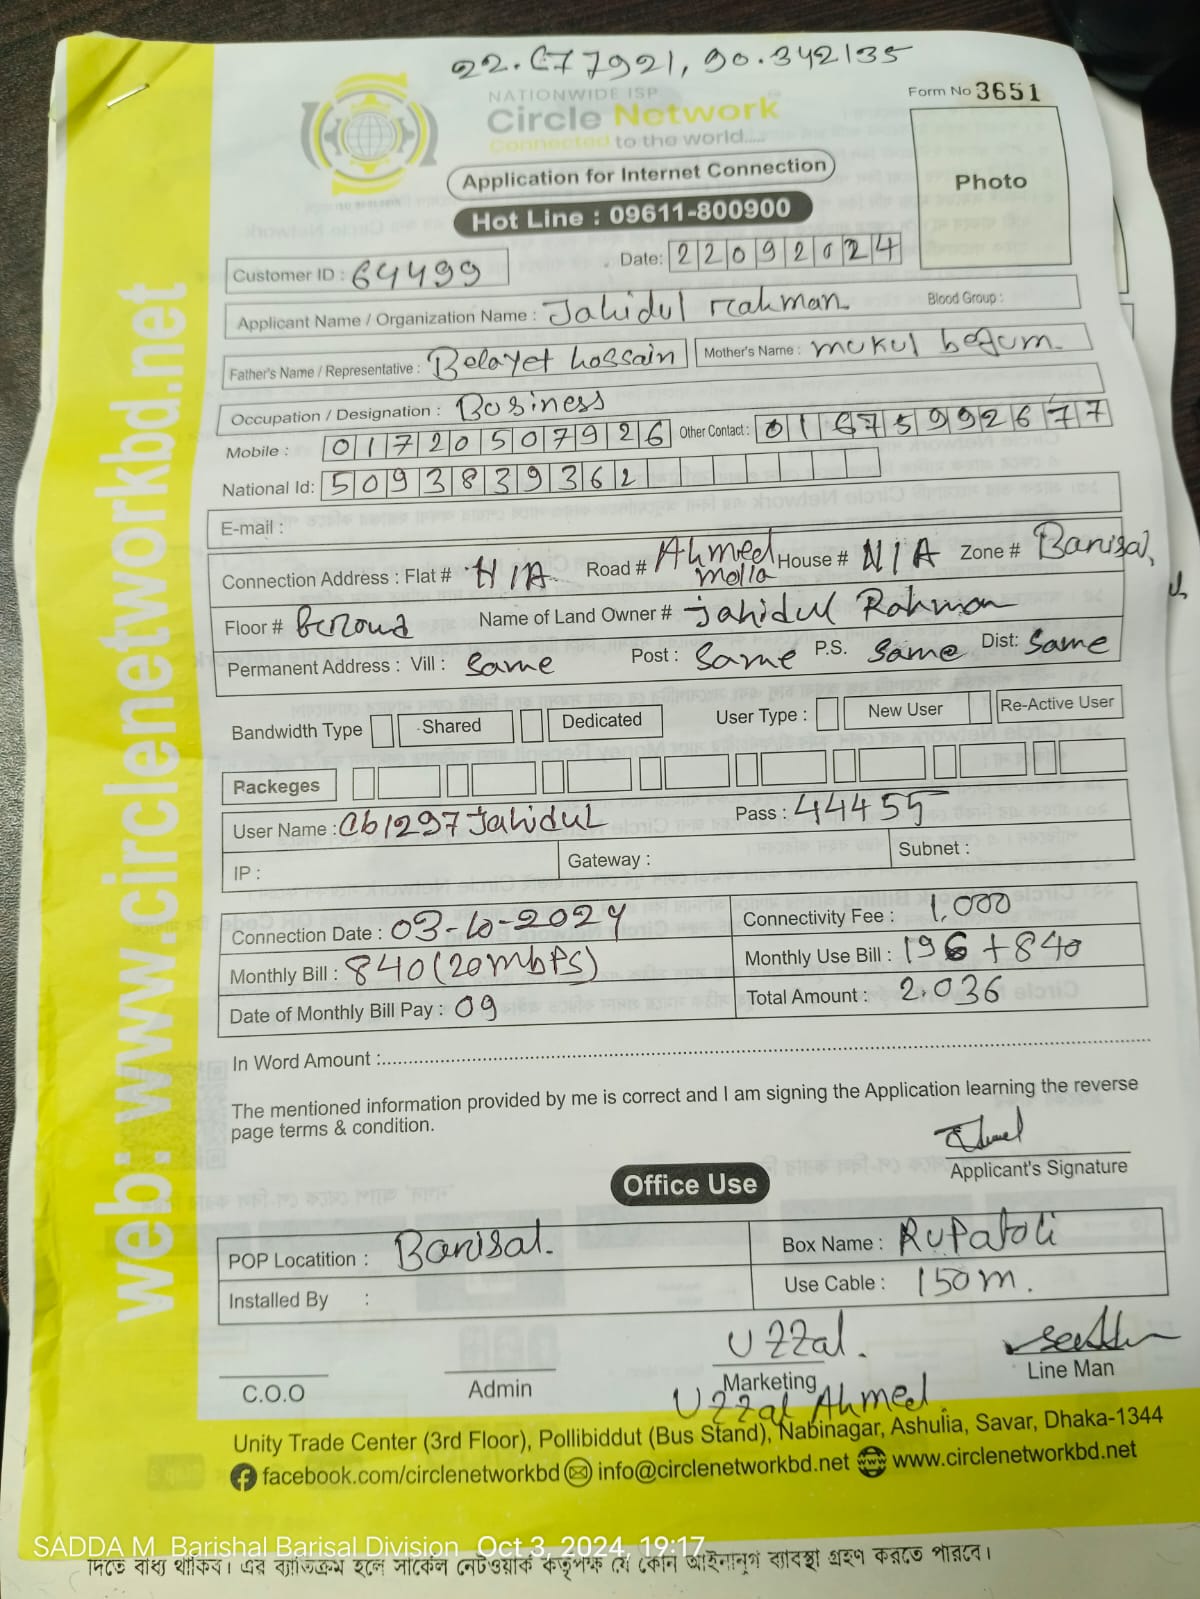 22.677921, 90.342135
NATIONWIDE ISP
Circle Network
Connected to the world.....
Form No 3651
Photo
Application for Internet Connection
Hot Line : 09611-800900
Date: 22092024
Customer ID : 64499
Applicant Name / Organization Name : Jahidul rahman Blood Group :
Father's Name / Representative : Belayet hossain Mother's Name : mukul begum.
Occupation / Designation : Business
Mobile : 01720507926 Other Contact : 01675992677
National Id: 5093839362
E-mail :
Connection Address : Flat # N/A Road # Ahmed molla House # N/A Zone # Barisal,
Floor # Ground Name of Land Owner # Jahidul Rahman
Permanent Address : Vill : Same Post : Same P.S. Same Dist: Same
Bandwidth Type Shared Dedicated User Type : New User Re-Active User
Packeges
User Name : Cb1297Jahidul Pass : 44455
IP : Gateway : Subnet :
Connection Date : 03-10-2024 Connectivity Fee : 1,000
Monthly Bill : 840(20mbps) Monthly Use Bill : 196+840
Date of Monthly Bill Pay : 09 Total Amount : 2,036
In Word Amount :
The mentioned information provided by me is correct and I am signing the Application learning the reverse
page terms & condition.
Applicant's Signature
Office Use
POP Locatition : Barisal. Box Name : Rupatoli
Installed By : Use Cable : 150m.
Uzzal.
C.O.O Admin Marketing Line Man
Uzzal Ahmed
Unity Trade Center (3rd Floor), Pollibiddut (Bus Stand), Nabinagar, Ashulia, Savar, Dhaka-1344
facebook.com/circlenetworkbd info@circlenetworkbd.net www.circlenetworkbd.net
web: www.circlenetworkbd.net
SADDA M Barishal Barisal Division Oct 3, 2024, 19:17
দিতে বাধ্য থাকিব। এর ব্যতিক্রম হলে সার্কেল নেটওয়ার্ক কর্তৃপক্ষ যে কোন আইনানুগ ব্যবস্থা গ্রহণ করতে পারবে।